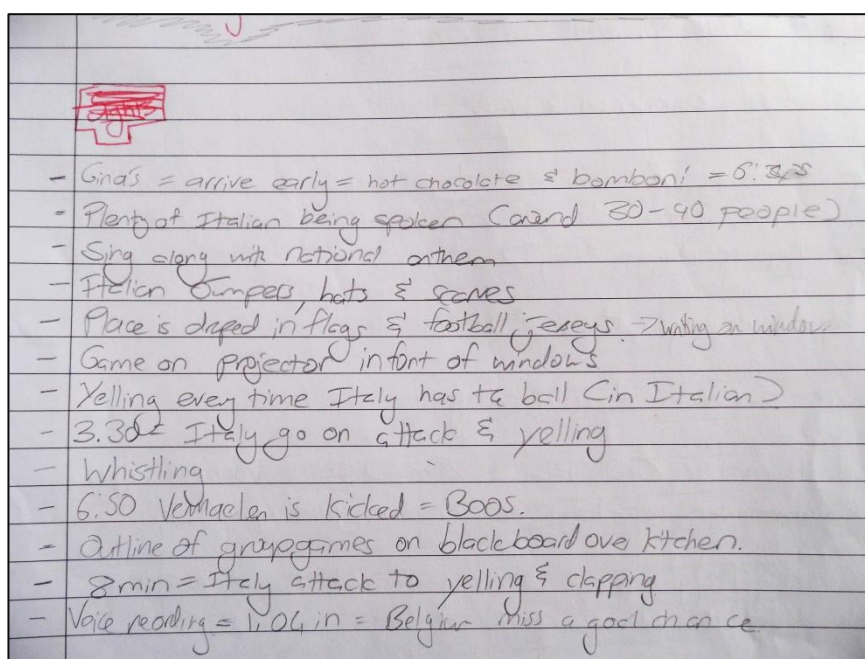 - Gina's = arrive early = hot chocolate & bomboni =
- Plenty of Italian being spoken (around 30-40 people)
- Sing along with national anthem
- Italian jumpers, hats & scarves
- Place is draped in flags & football jerseys. → writing on window
- Game on projector in font of windows
- Yelling every time Italy has the ball (in Italian)
- 3.30 = Italy go on attack & yelling
- Whistling
- 6:50 Vermaelen is kicked = Boos.
- Outline of group games on blackboard over kitchen.
- 8min = Italy attack to yelling & clapping
- Voice recording = 1,04 in = Belgium miss a goal chance